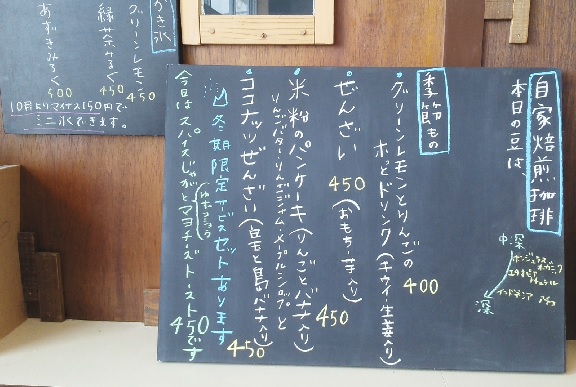 自家焙煎珈琲
本日の豆は、
中深
深
季節もの
・グリーンレモンとりんごの
ホットドリンク(チャイ・生姜入り)
400
・ぜんざい(おもち・芋入り)
450
・米粉のパンケーキ(りんごとバナナ入り)
450
・ココナッツぜんざい(白玉と島バナナ入り)
450
冬期限定サービスセットあります
今日はスパイスじゃがとマヨチーズトースト
450です
かき氷
グリーンレモン
450
緑茶みるく
450
あずきみるく
500
10月よりマイナス150円で
ミニ氷できます。